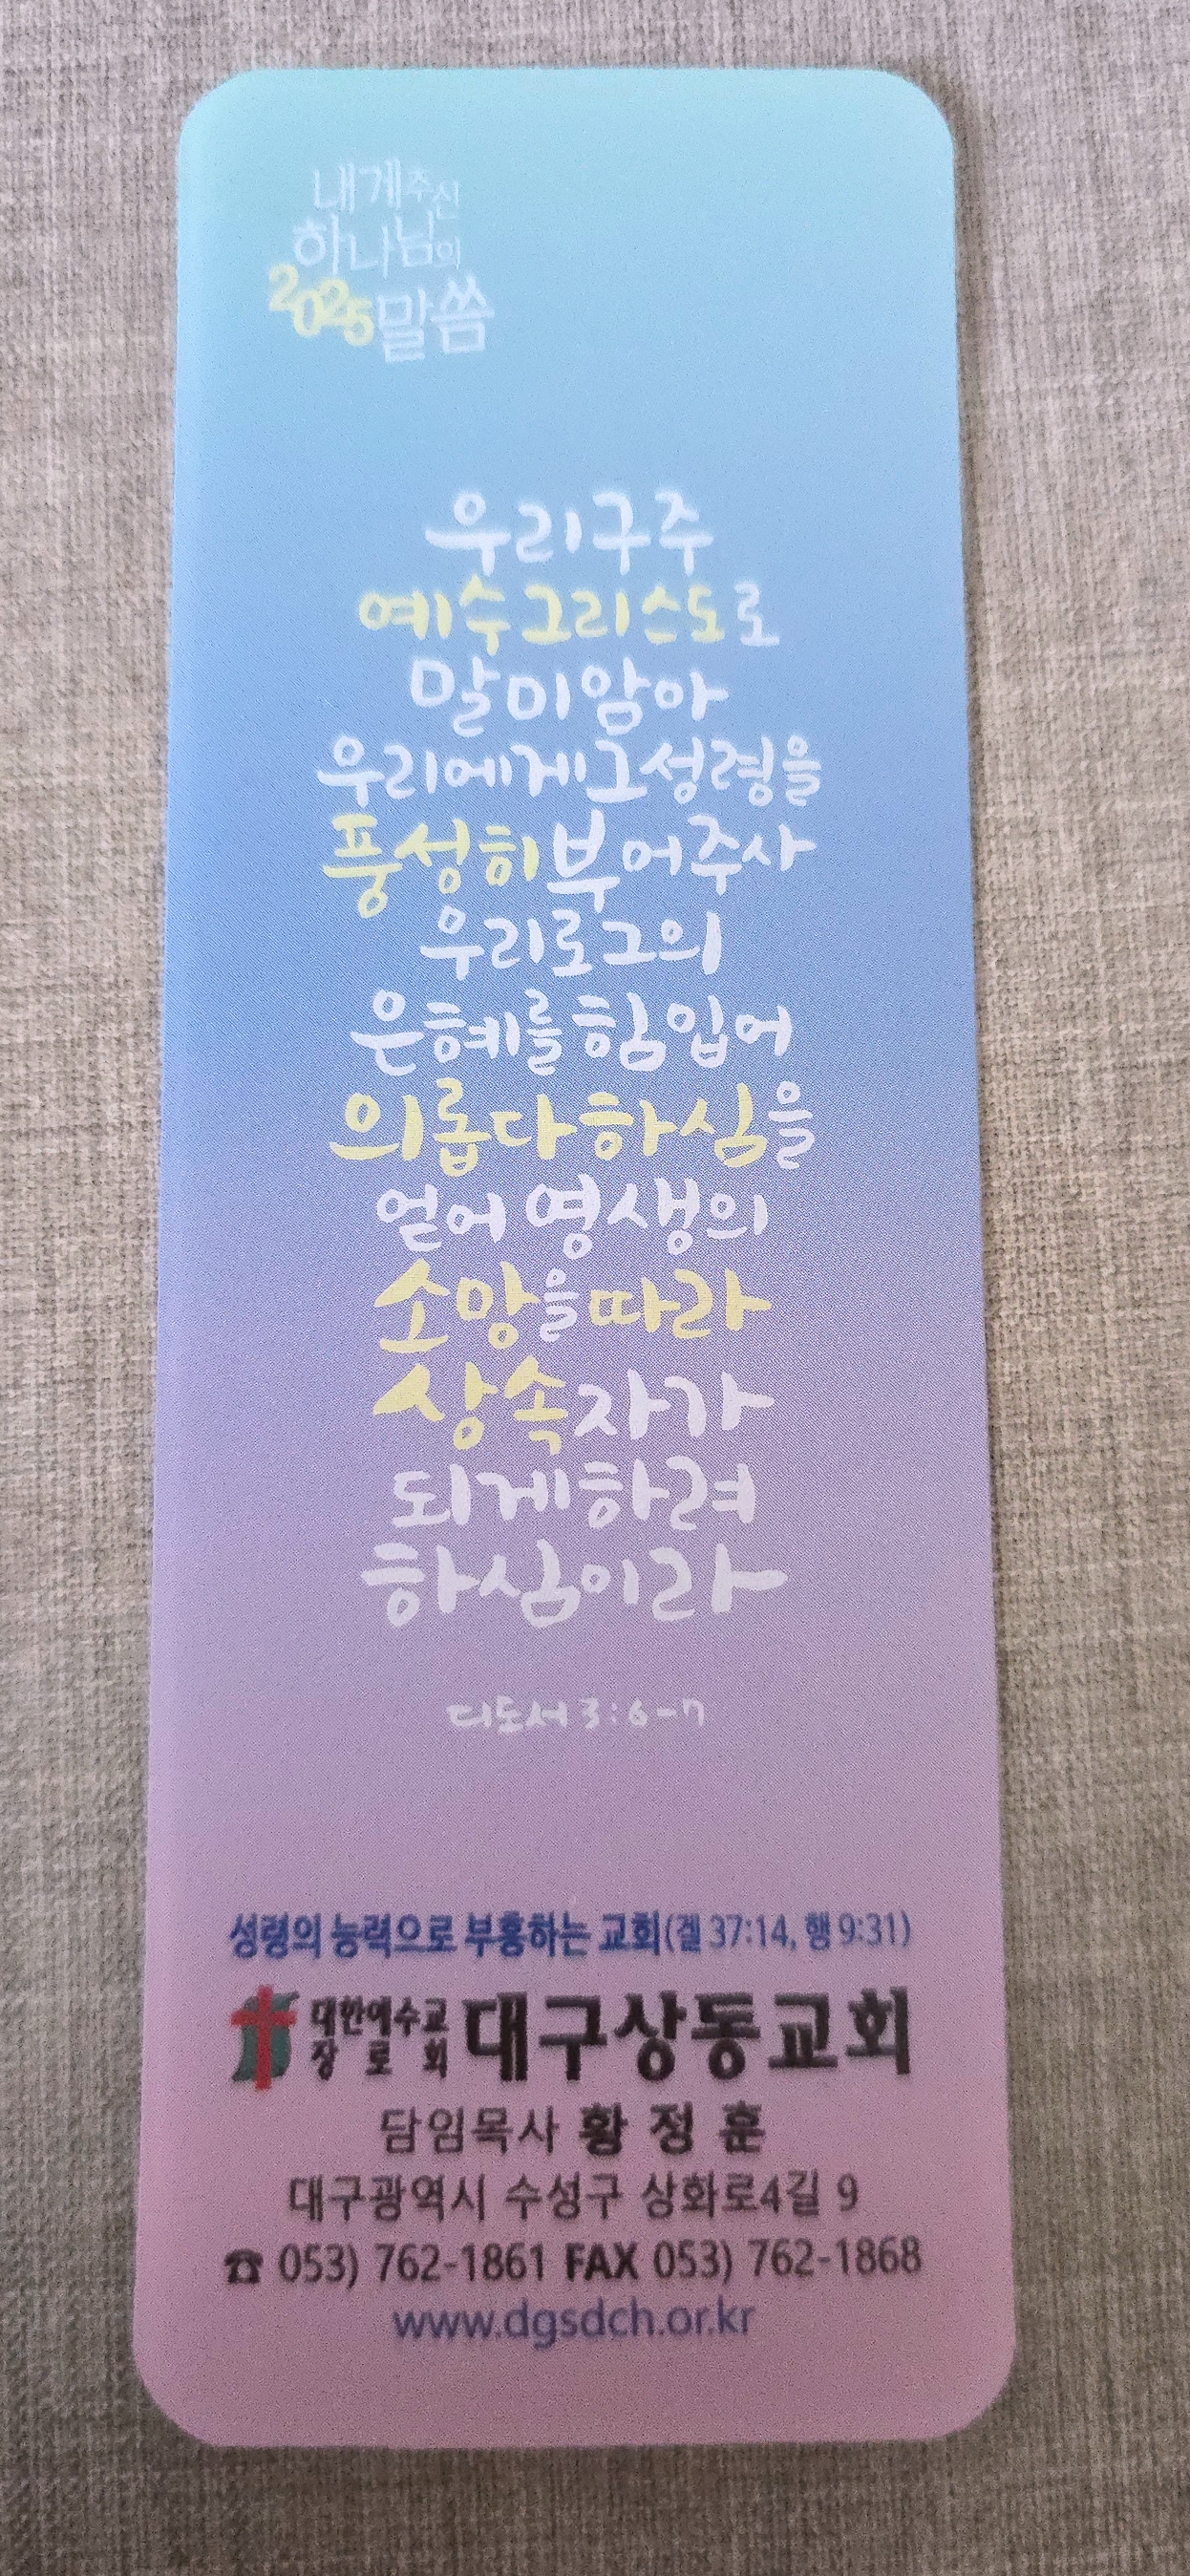 내게 주신
하나님의
2025 말씀
우리 구주
예수 그리스도로
말미암아
우리에게 그 성령을
풍성히 부어 주사
우리로 그의
은혜를 힘입어
의롭다 하심을
얻어 영생의
소망을 따라
상속자가
되게 하려
하심이라
디도서 3:6-7
성령의 능력으로 부흥하는 교회(겔 37:14, 행 9:31)
대한예수교
장로회
대구상동교회
담임목사 황정훈
대구광역시 수성구 상화로4길 9
☎ 053) 762-1861 FAX 053) 762-1868
www.dgsdch.or.kr